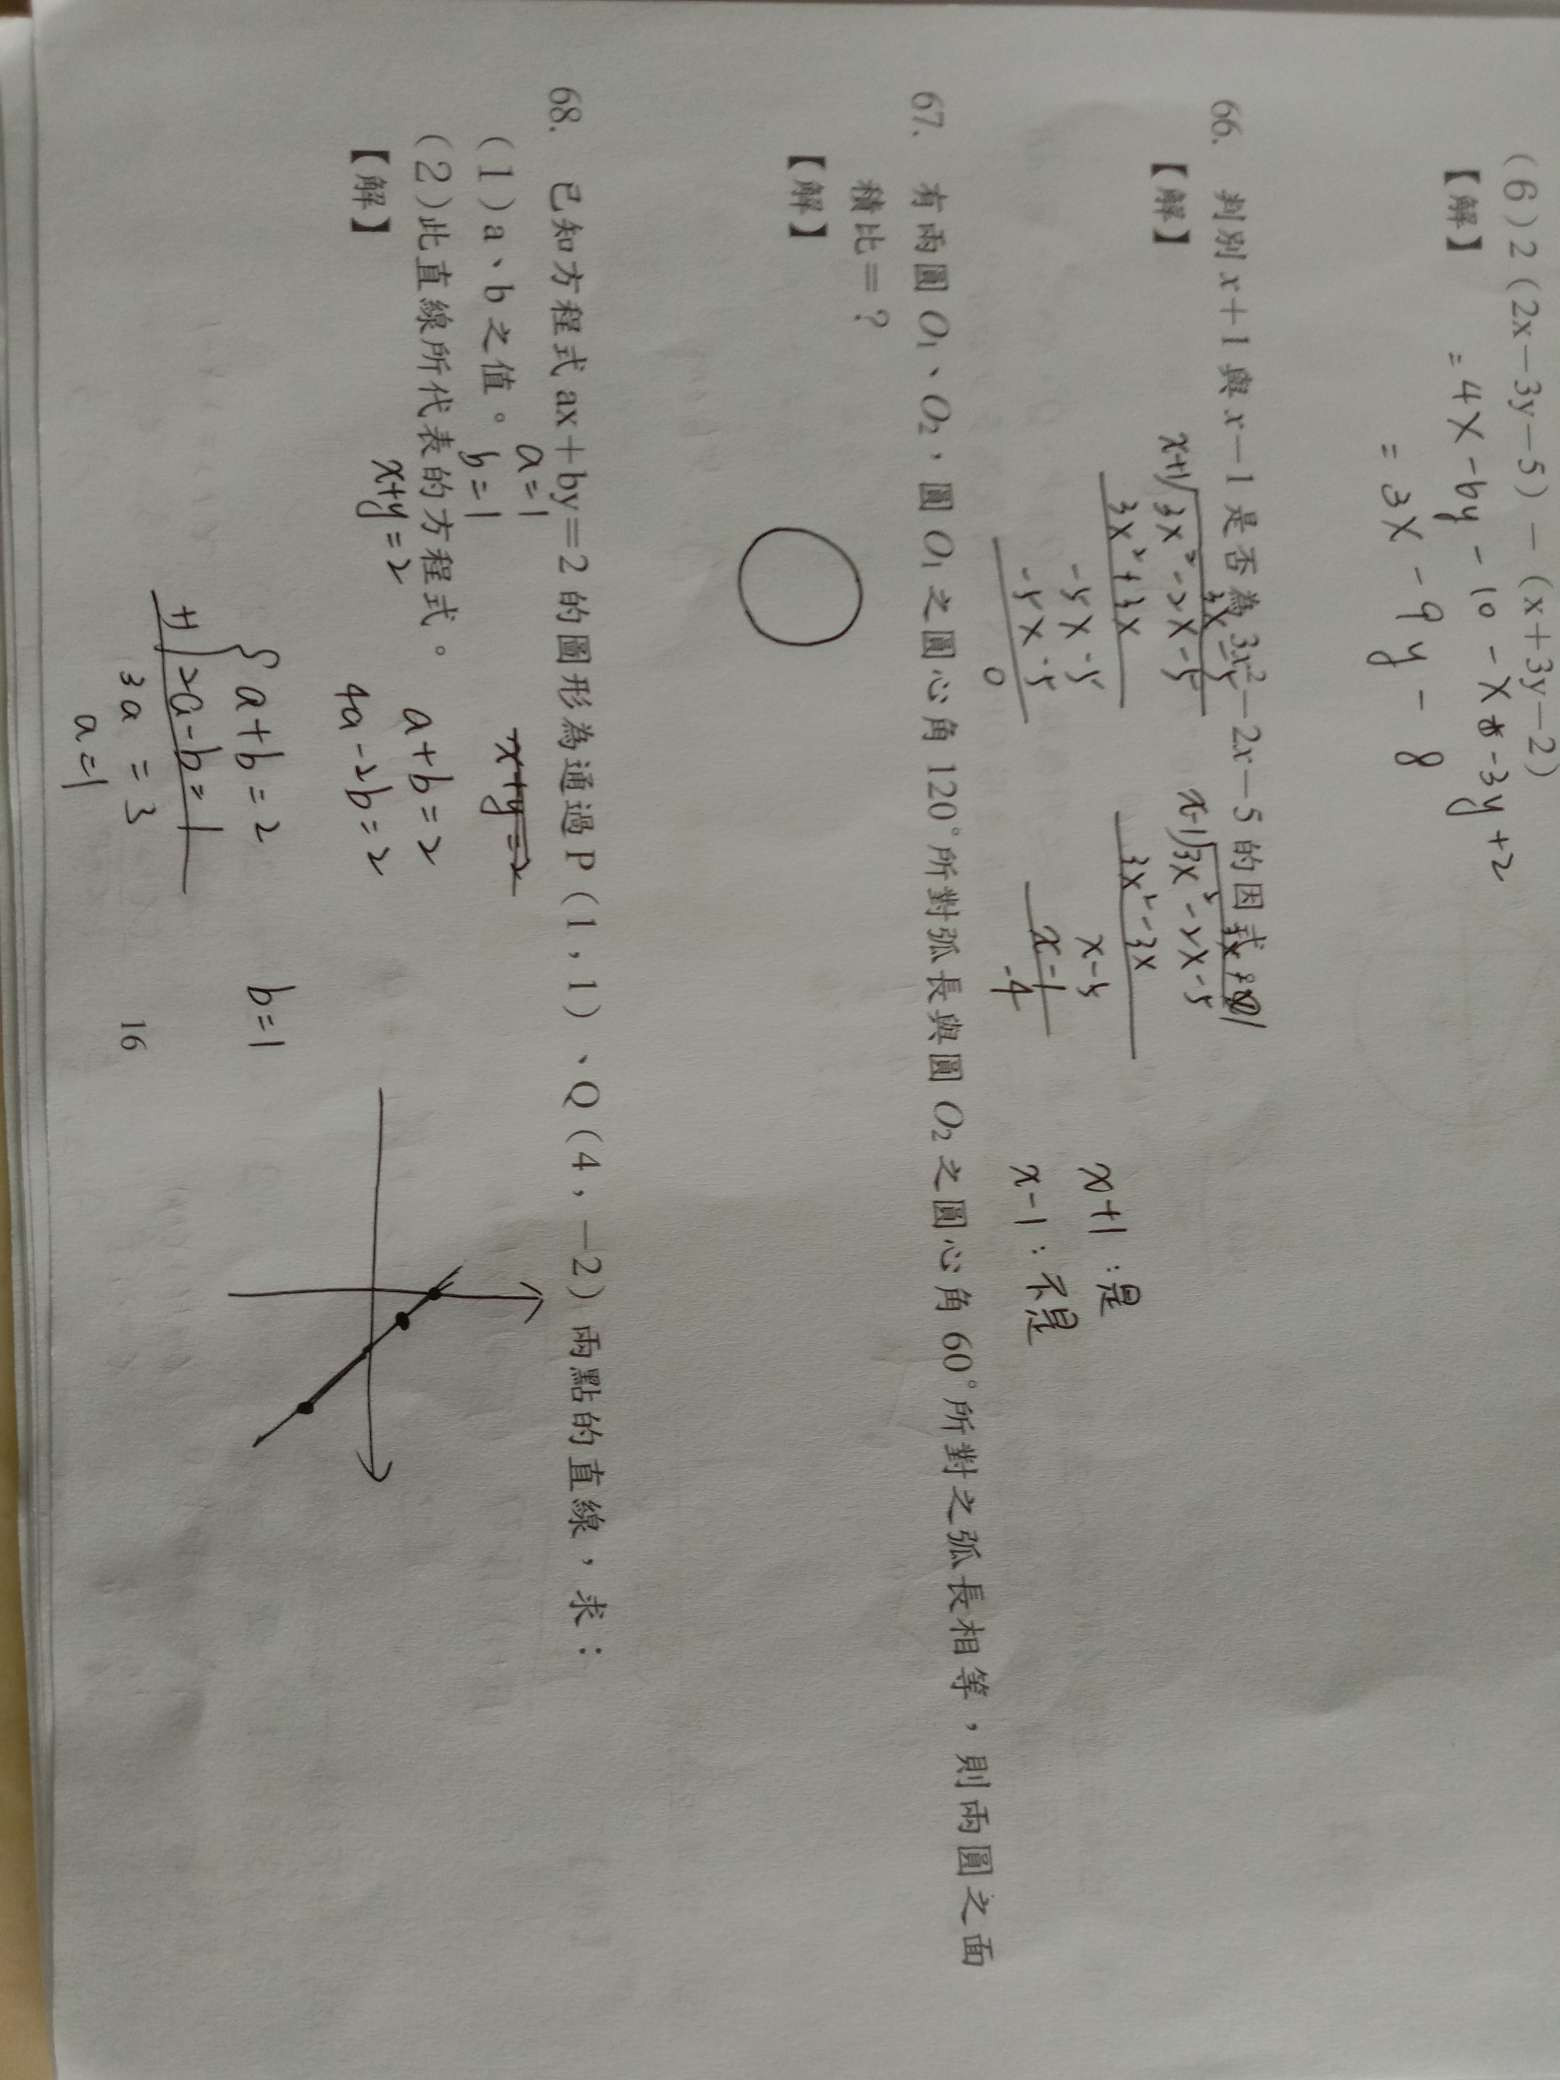 (6) 2(2x-3y-5)-(x+3y-2)
【解】
= 4x - 6y - 10 - x - 3y + 2
= 3x - 9y - 8
66. 判別 x+1 與 x-1 是否為 3x²-2x-5 的因式
【解】
3x-5
x+1)3x²-2x-5
3x²+3x
-5x-5
-5x-5
0
3x+1
x-1)3x²-2x-5
3x²-3x
x-5
x-1
-4
x+1:是
x-1:不是
67. 有兩圓 O₁、O₂,圓 O₁ 之圓心角 120°所對弧長與圓 O₂ 之圓心角 60°所對之弧長相等,則兩圓之面
積比=?
【解】
68. 已知方程式 ax+by=2 的圖形為通過 P(1,1)、Q(4,-2)兩點的直線,求:
(1)a、b 之值。
a=1
b=1
(2)此直線所代表的方程式。
x+y=2
【解】
x+y=2
a+b=2
4a-2b=2
{a+b=2
+)2a-b=1
3a = 3
a=1
b=1
16